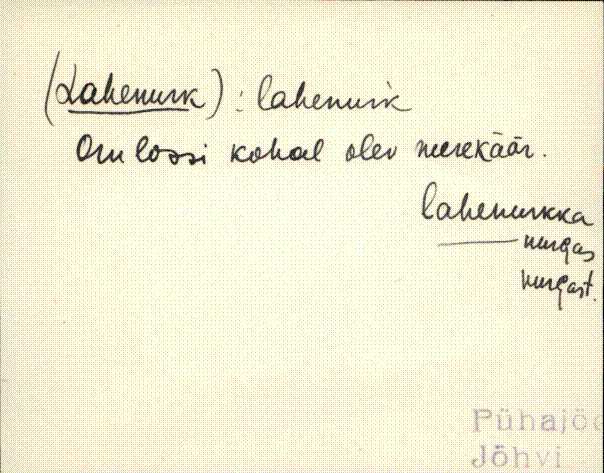 (Lahenurk) : lahenurk
Oru lossi kohal olev merekäär.
lahenurkka
—— nurgas
nurgast.
Pühajõe
Jõhvi